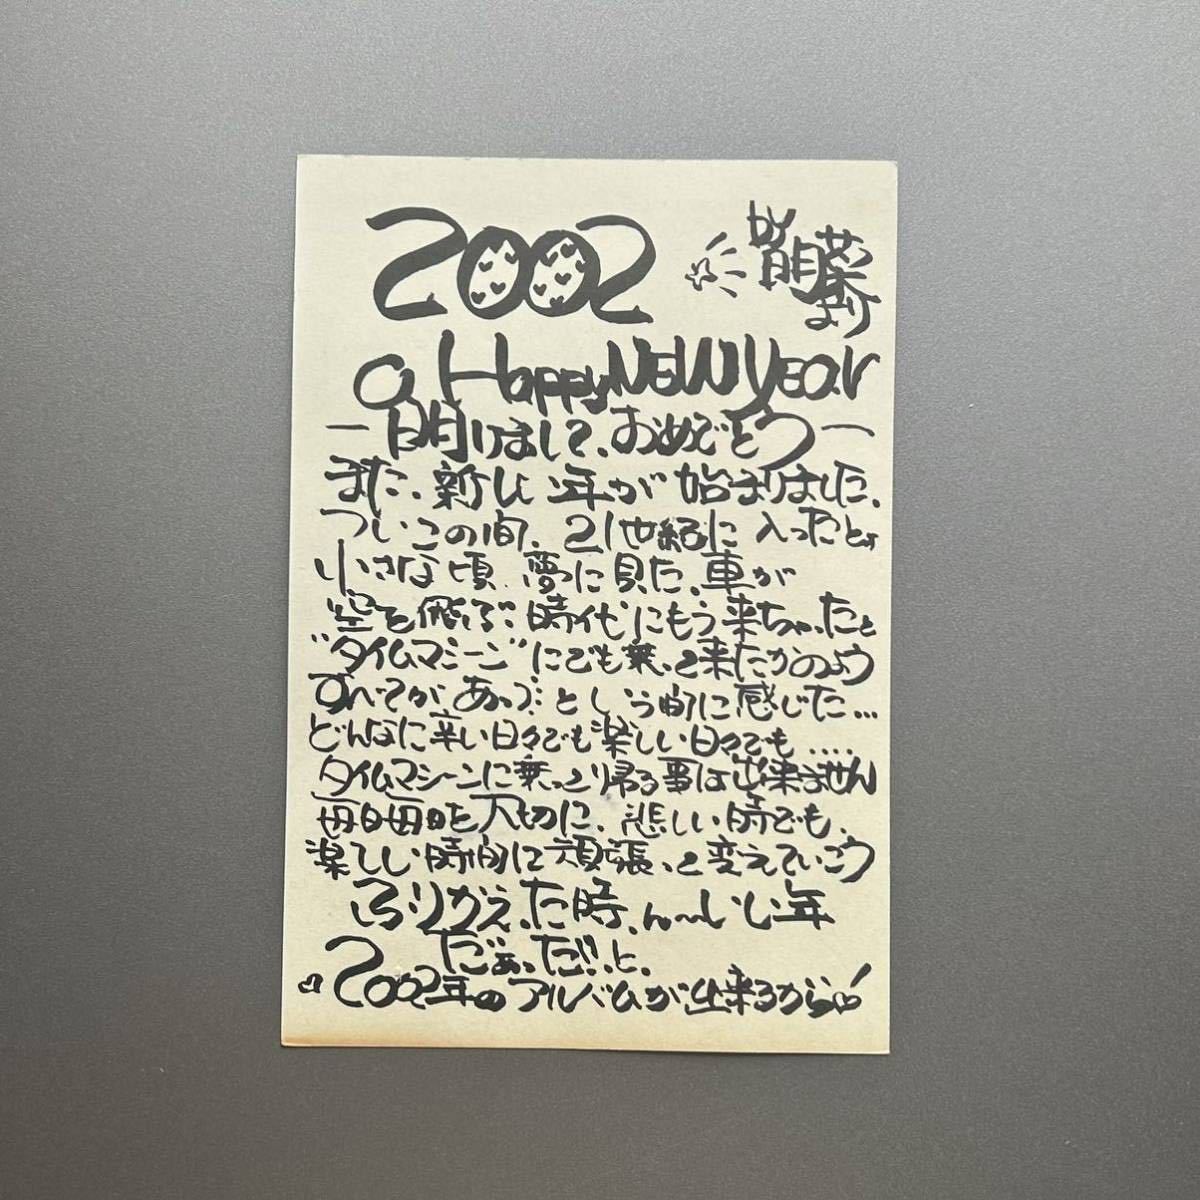 2002
by
a Happy NEW YEar
ー明けまして、おめでとうー
また、新しい年が始まりました、
ついこの間、21世紀に入ったとき
小さな頃、夢に見た、車が
空を飛ぶ、時代にもう来ちゃったと
"タイムマシーン"にでも乗って来たかのよう
すべてが、あっ! という間に感じた…
どんなに辛い日々でも楽しい日々でも....
タイムマシーンに乗ってとり帰る事は出来ません
毎日毎日を大切に、悲しい時でも、
楽しい時間に頑張って変えていこう
ふりかえった時、ん〜いい年
だぁっだ!!と、
2002年のアルバムが出来るから♡!